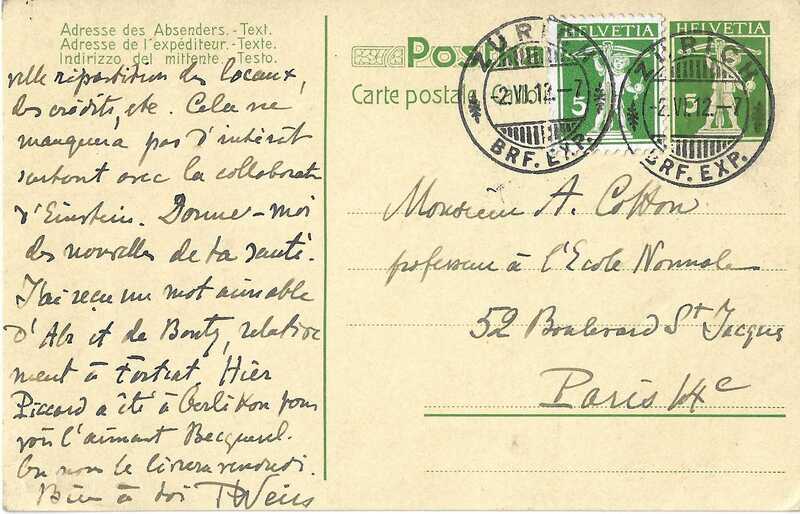 Adresse des Absenders.-Text.
Adresse de l'expéditeur.-Texte.
Indirizzo del mittente.-Testo.
ville répartition des locaux,
des crédits, etc. Cela ne
manquera pas d'intérêt
surtout avec la collaborat
d'Einstein. Donne-moi
des nouvelles de ta santé.
J'ai reçu un mot aimable
d'Abr et de Bouty, relative
ment à Fortrat Hier
Piccard a été à Oerlikon pour
voir l'aimant Becquerel.
On nous le livrera vendredi.
Bien à toi PWeiss
Post
Carte postale
HELVETIA
5
HELVETIA
5
ZÜRICH
-2.VI.12.-7
BRF. EXP.
ZÜRICH
-2.VI.12.-7
BRF. EXP.
Monsieur A. Cotton
professeur à l'Ecole Normale
52 Boulevard St Jacques
Paris 14e